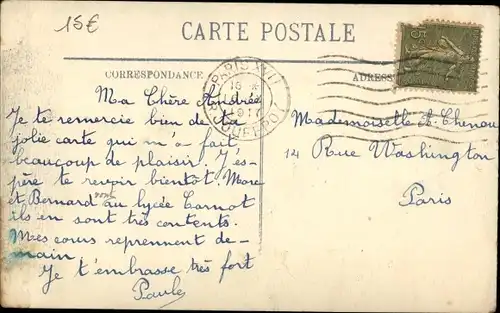 15€
CARTE POSTALE
CORRESPONDANCE
ADRESSE
PARIS XVII
Ma Chère Andrée
Je te remercie bien de ta
jolie carte qui m'a fait
beaucoup de plaisir. J'es-
père te revoir bientôt. Marc
et Bernard sont au lycée Carnot
ils en sont très contents.
Mes cours reprennent de-
main.
Je t'embrasse très fort
Paule
Mademoiselle A. Chenau
14 Rue Washington
Paris